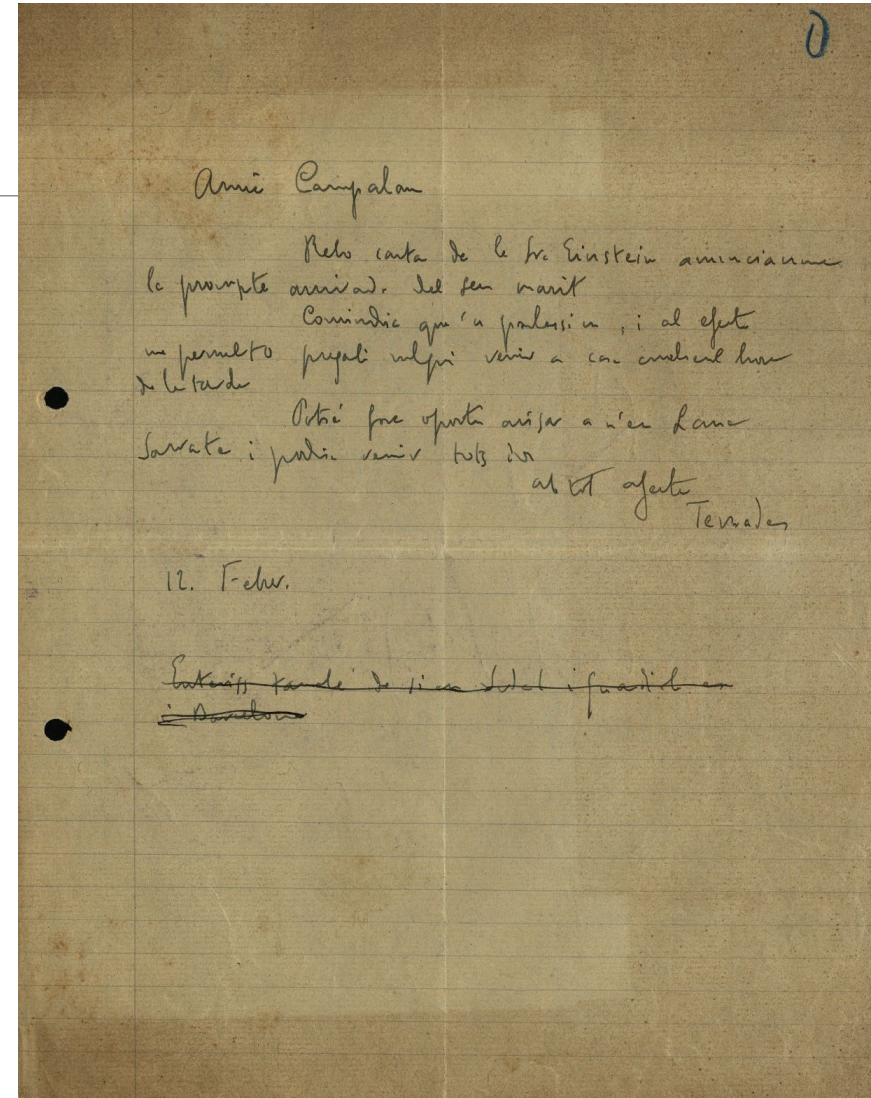 Amic Campalan
Rebo carta de la Sra Einstein anunciantme
la prompte arrivada del seu marit
Convindria que'n parlessim, i al efecte
me permeto pregali vulgui venir a casa
de la tarde
Potsé fora oportú avisar a n'en Lana
Sarrate i podria venir tots dos
ab tot afecte
Terradas
12. Febr.
de si en
i Barcelona